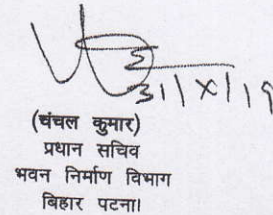 31/X/19
(चंचल कुमार)
प्रधान सचिव
भवन निर्माण विभाग
बिहार पटना।